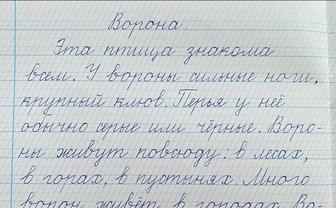 Ворона.
Эта птица знакома
всем. У вороны сильные ноги,
крупный клюв. Перья у неё
обычно серые или чёрные. Воро-
ны живут повсюду: в лесах,
в горах, в пустынях. Много
ворон живёт в городах. Во-